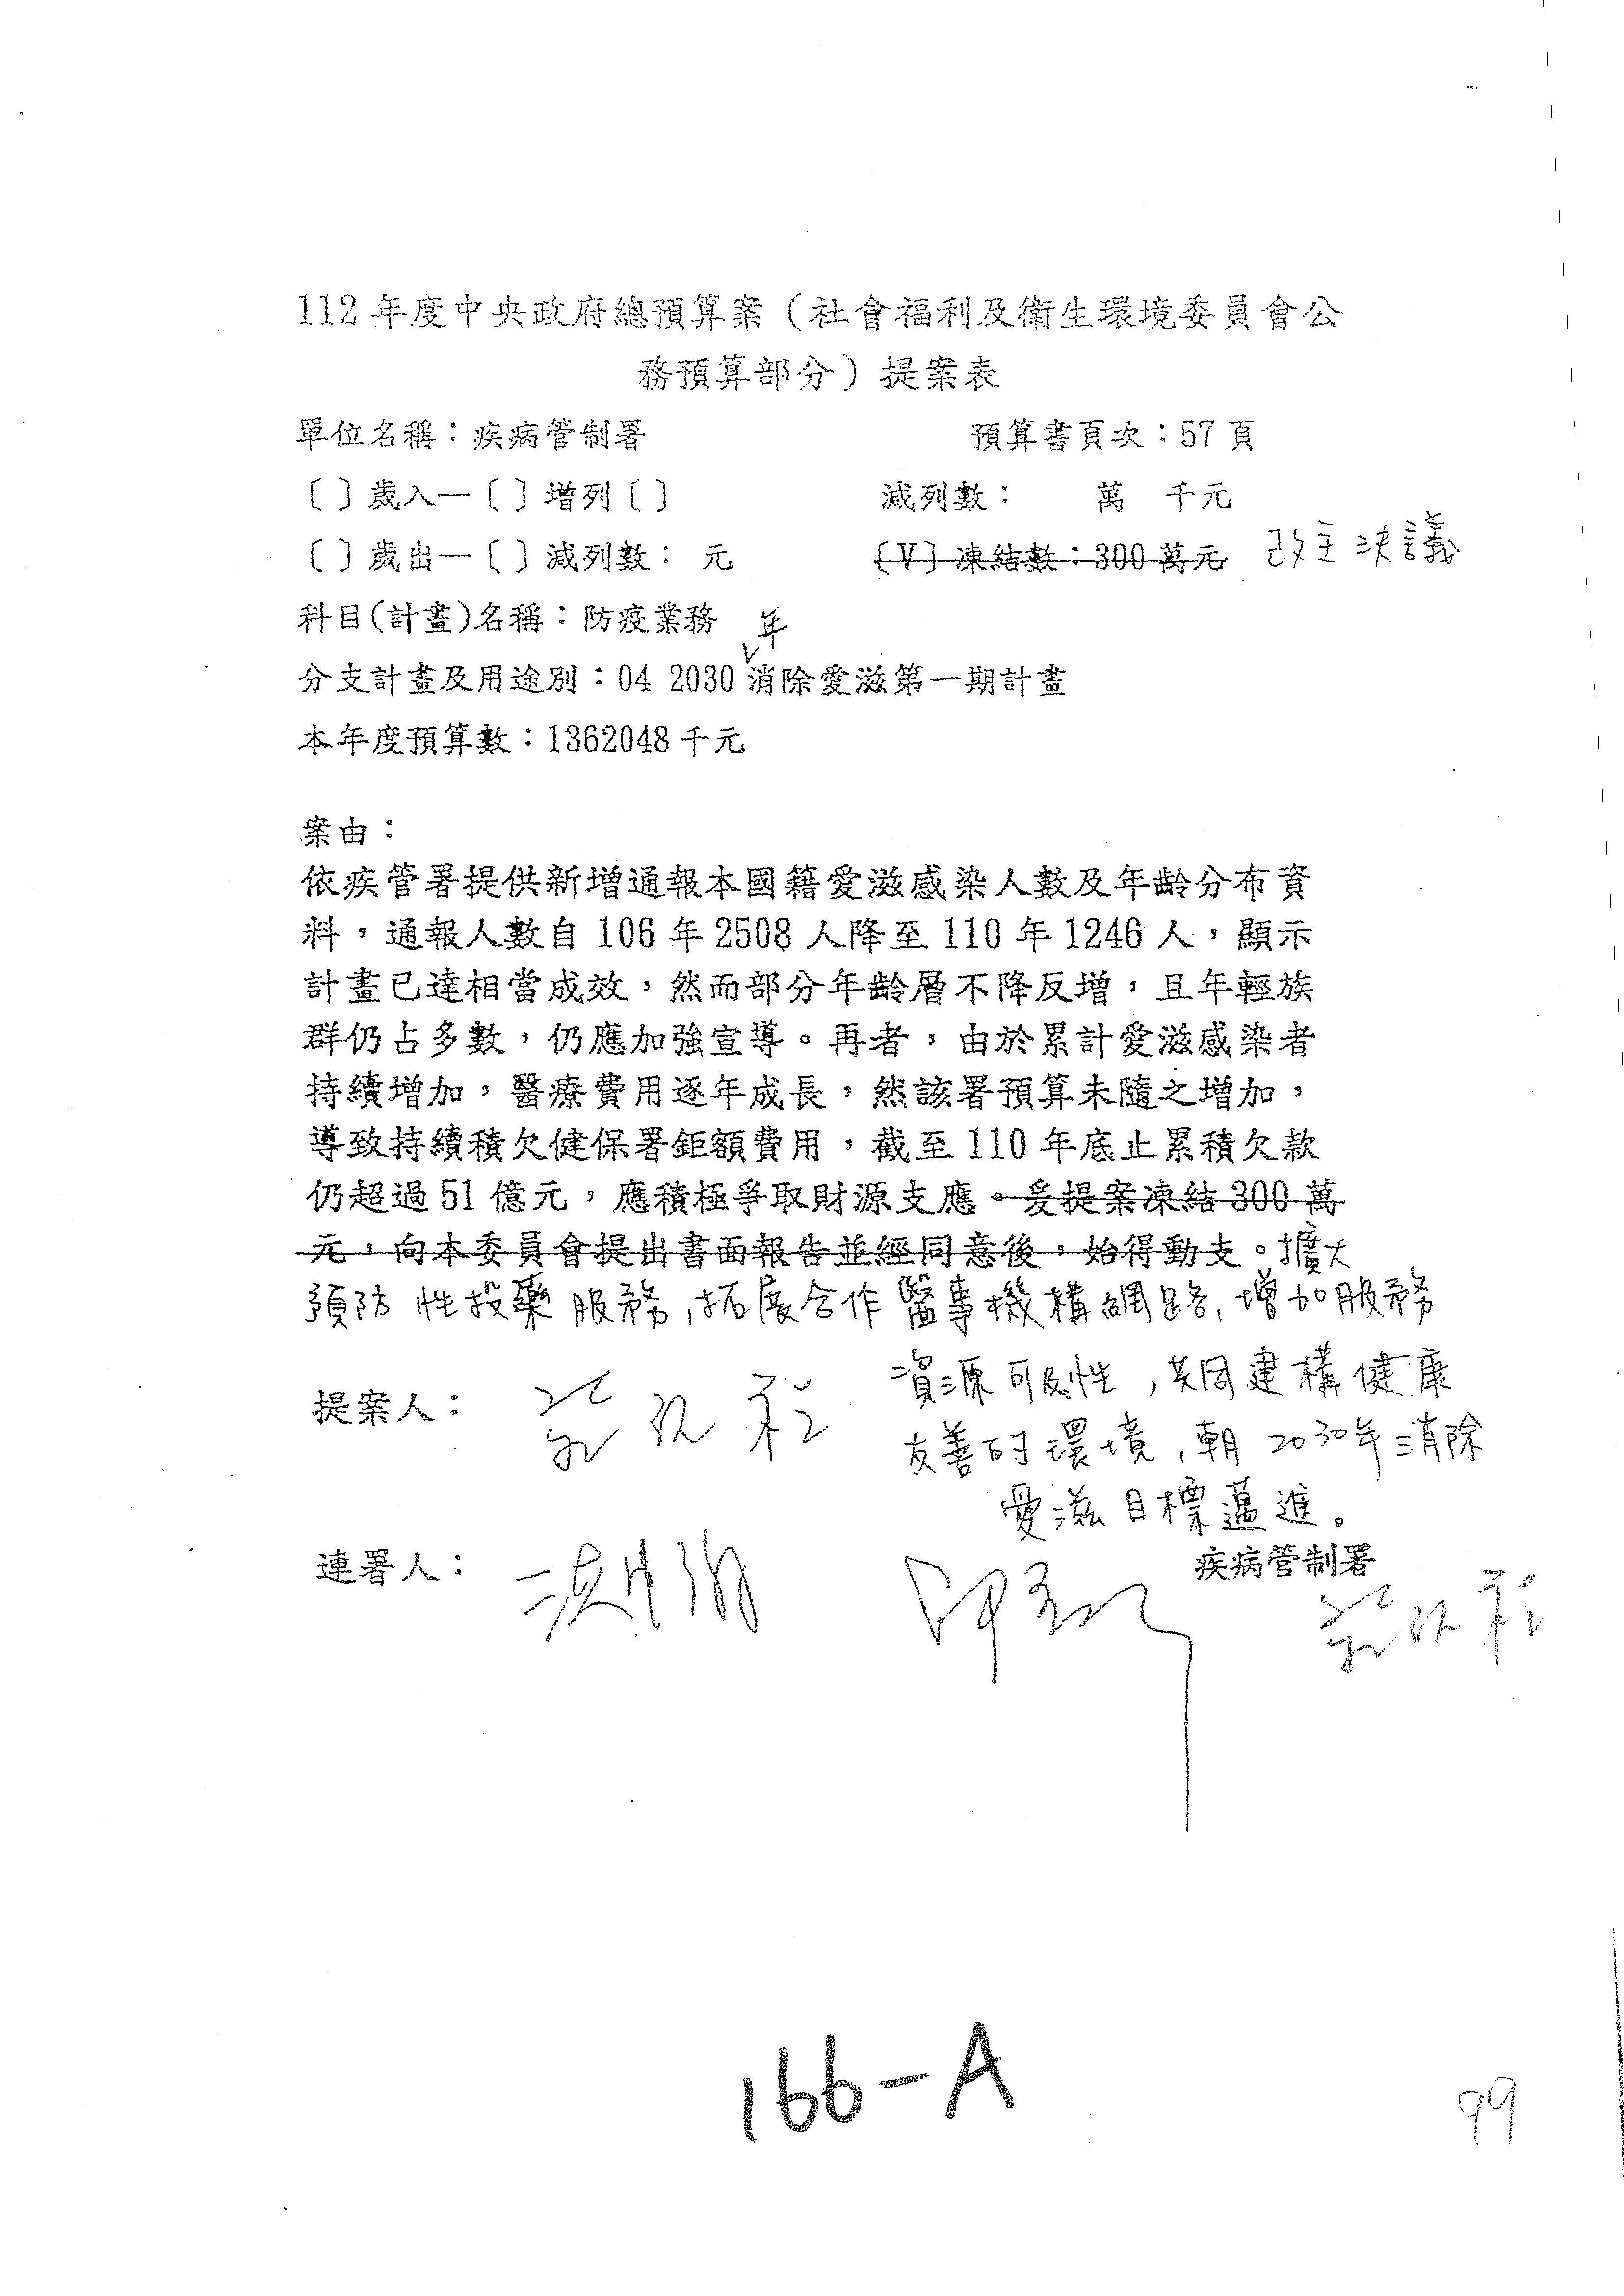 112 年度中央政府總預算案（社會福利及衛生環境委員會公
務預算部分）提案表
單位名稱：疾病管制署 預算書頁次：57 頁
〔 〕歲入—〔 〕增列〔 〕 減列數： 萬 千元
〔 〕歲出—〔 〕減列數： 元 〔V〕凍結數：300 萬元 改主決議
科目(計畫)名稱：防疫業務
年
分支計畫及用途別：04 2030 消除愛滋第一期計畫
本年度預算數：1362048 千元
案由：
依疾管署提供新增通報本國籍愛滋感染人數及年齡分布資
料，通報人數自 106 年 2508 人降至 110 年 1246 人，顯示
計畫已達相當成效，然而部分年齡層不降反增，且年輕族
群仍占多數，仍應加強宣導。再者，由於累計愛滋感染者
持續增加，醫療費用逐年成長，然該署預算未隨之增加，
導致持續積欠健保署鉅額費用，截至 110 年底止累積欠款
仍超過 51 億元，應積極爭取財源支應。爰提案凍結 300 萬
元，向本委員會提出書面報告並經同意後，始得動支。擴大
預防性投藥服務,拓展合作醫事機構網路,增加服務
資源可及性,共同建構健康
提案人：
友善的環境,朝2030年消除
愛滋目標邁進。
連署人：
疾病管制署
166-A
99